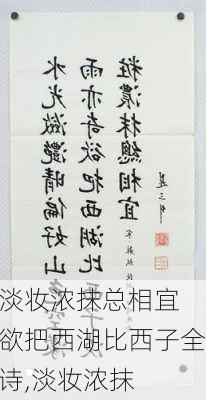 水光瀲灩晴偏好山
雨亦奇欲把西湖比
粧濃抹總相宜
淡妆浓抹总相宜
欲把西湖比西子全
诗,淡妆浓抹